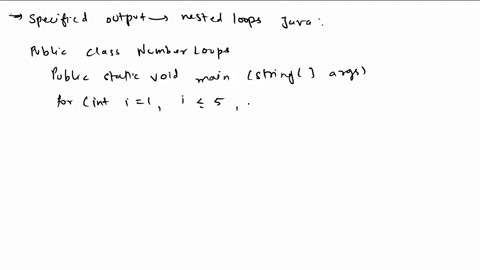 → Specified output → nested loops Java:
Public class NumberLoops
Public static void main (string[] args)
for (int i=1, i ≤ 5, .